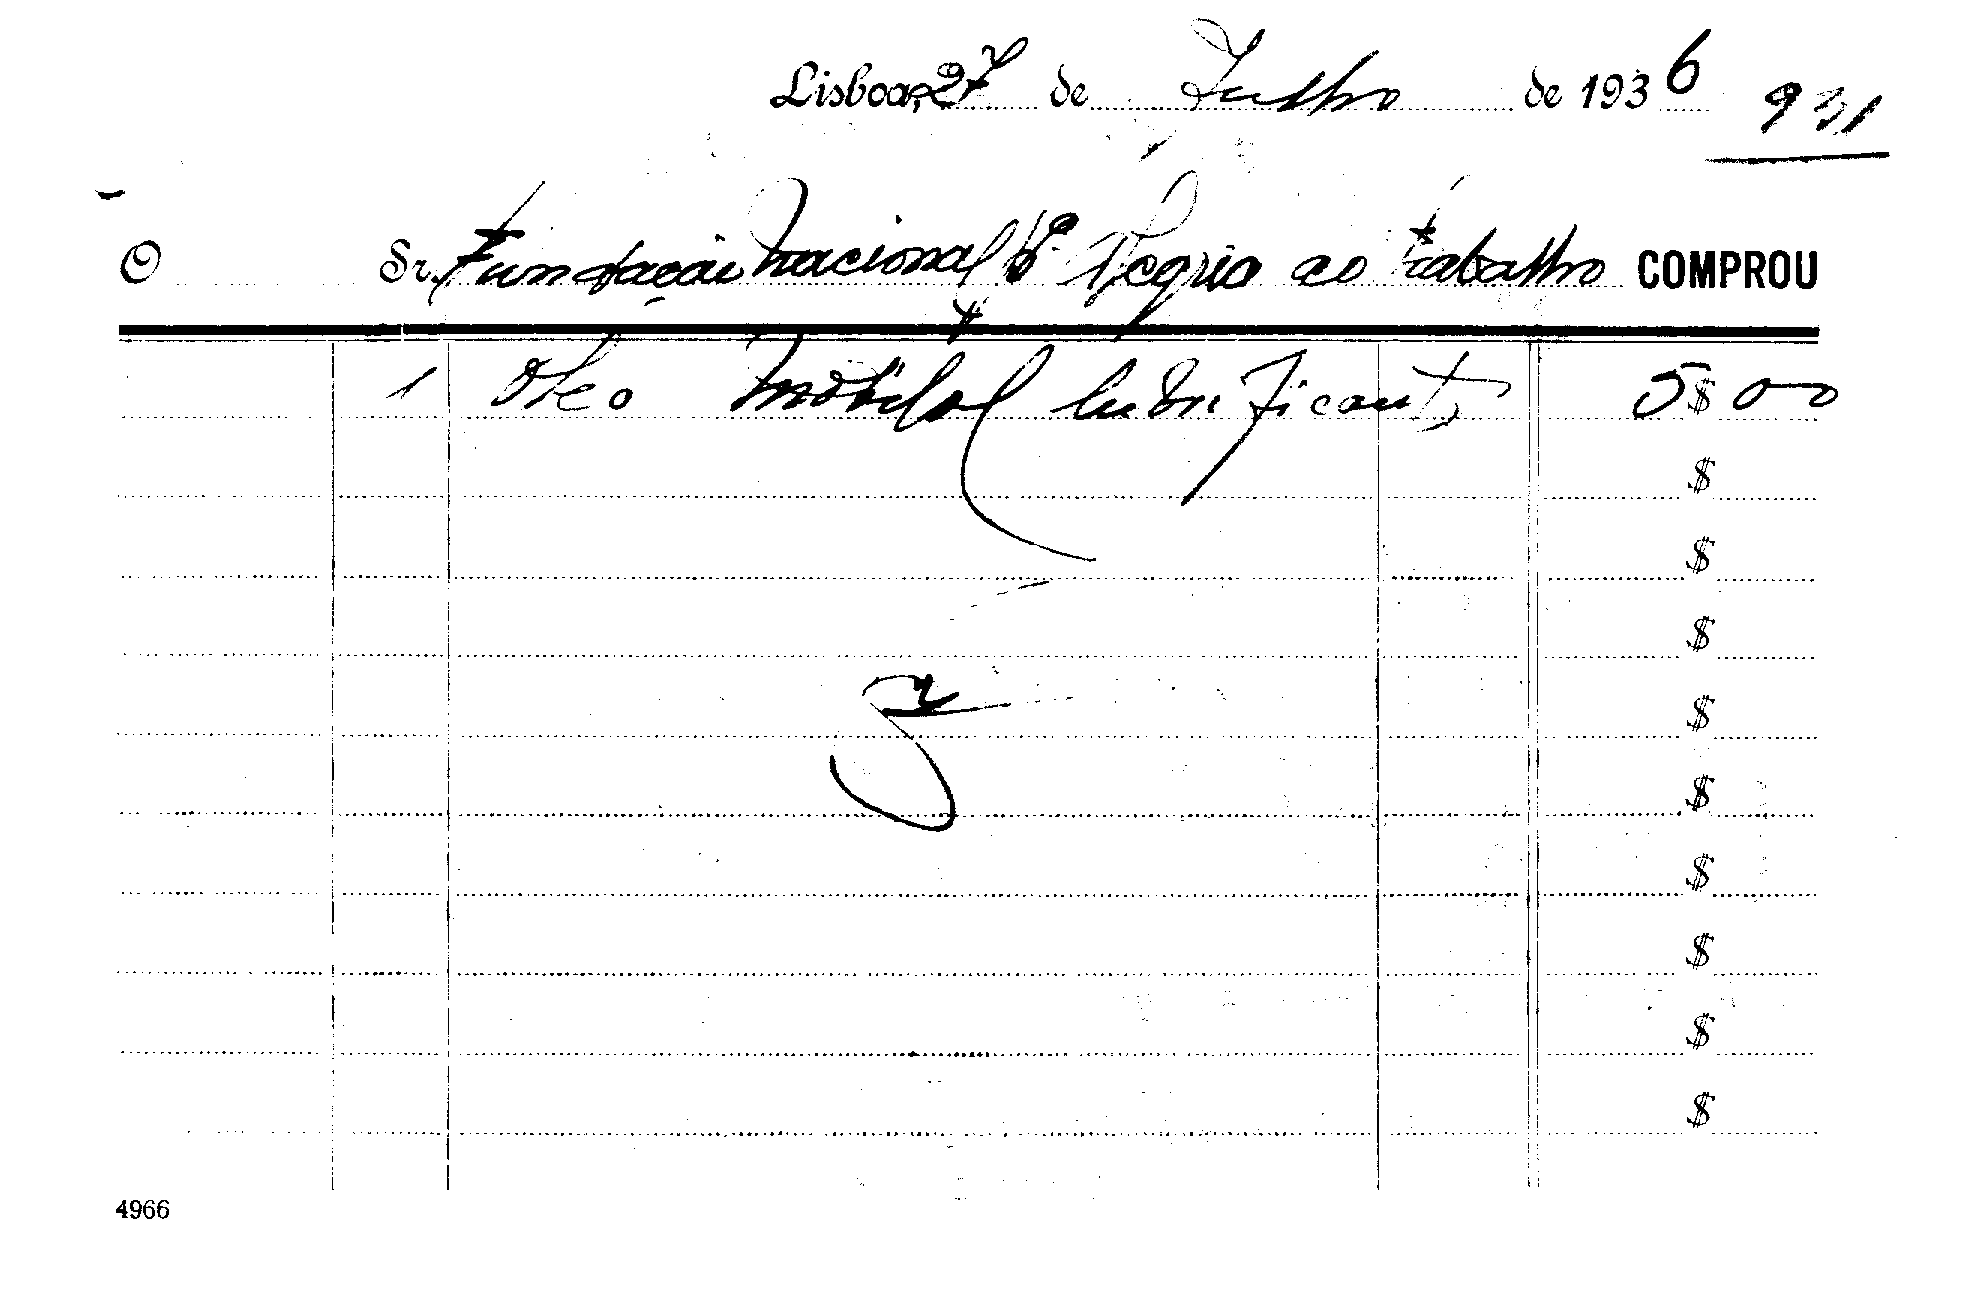 Lisboa, 27 de Julho de 1936
931
O Sr. Fundação Nacional pª Alegria ao trabalho COMPROU
1 Oleo Mobiloil lubrificante 5$00
$
$
$
$
$
$
$
$
$
4966